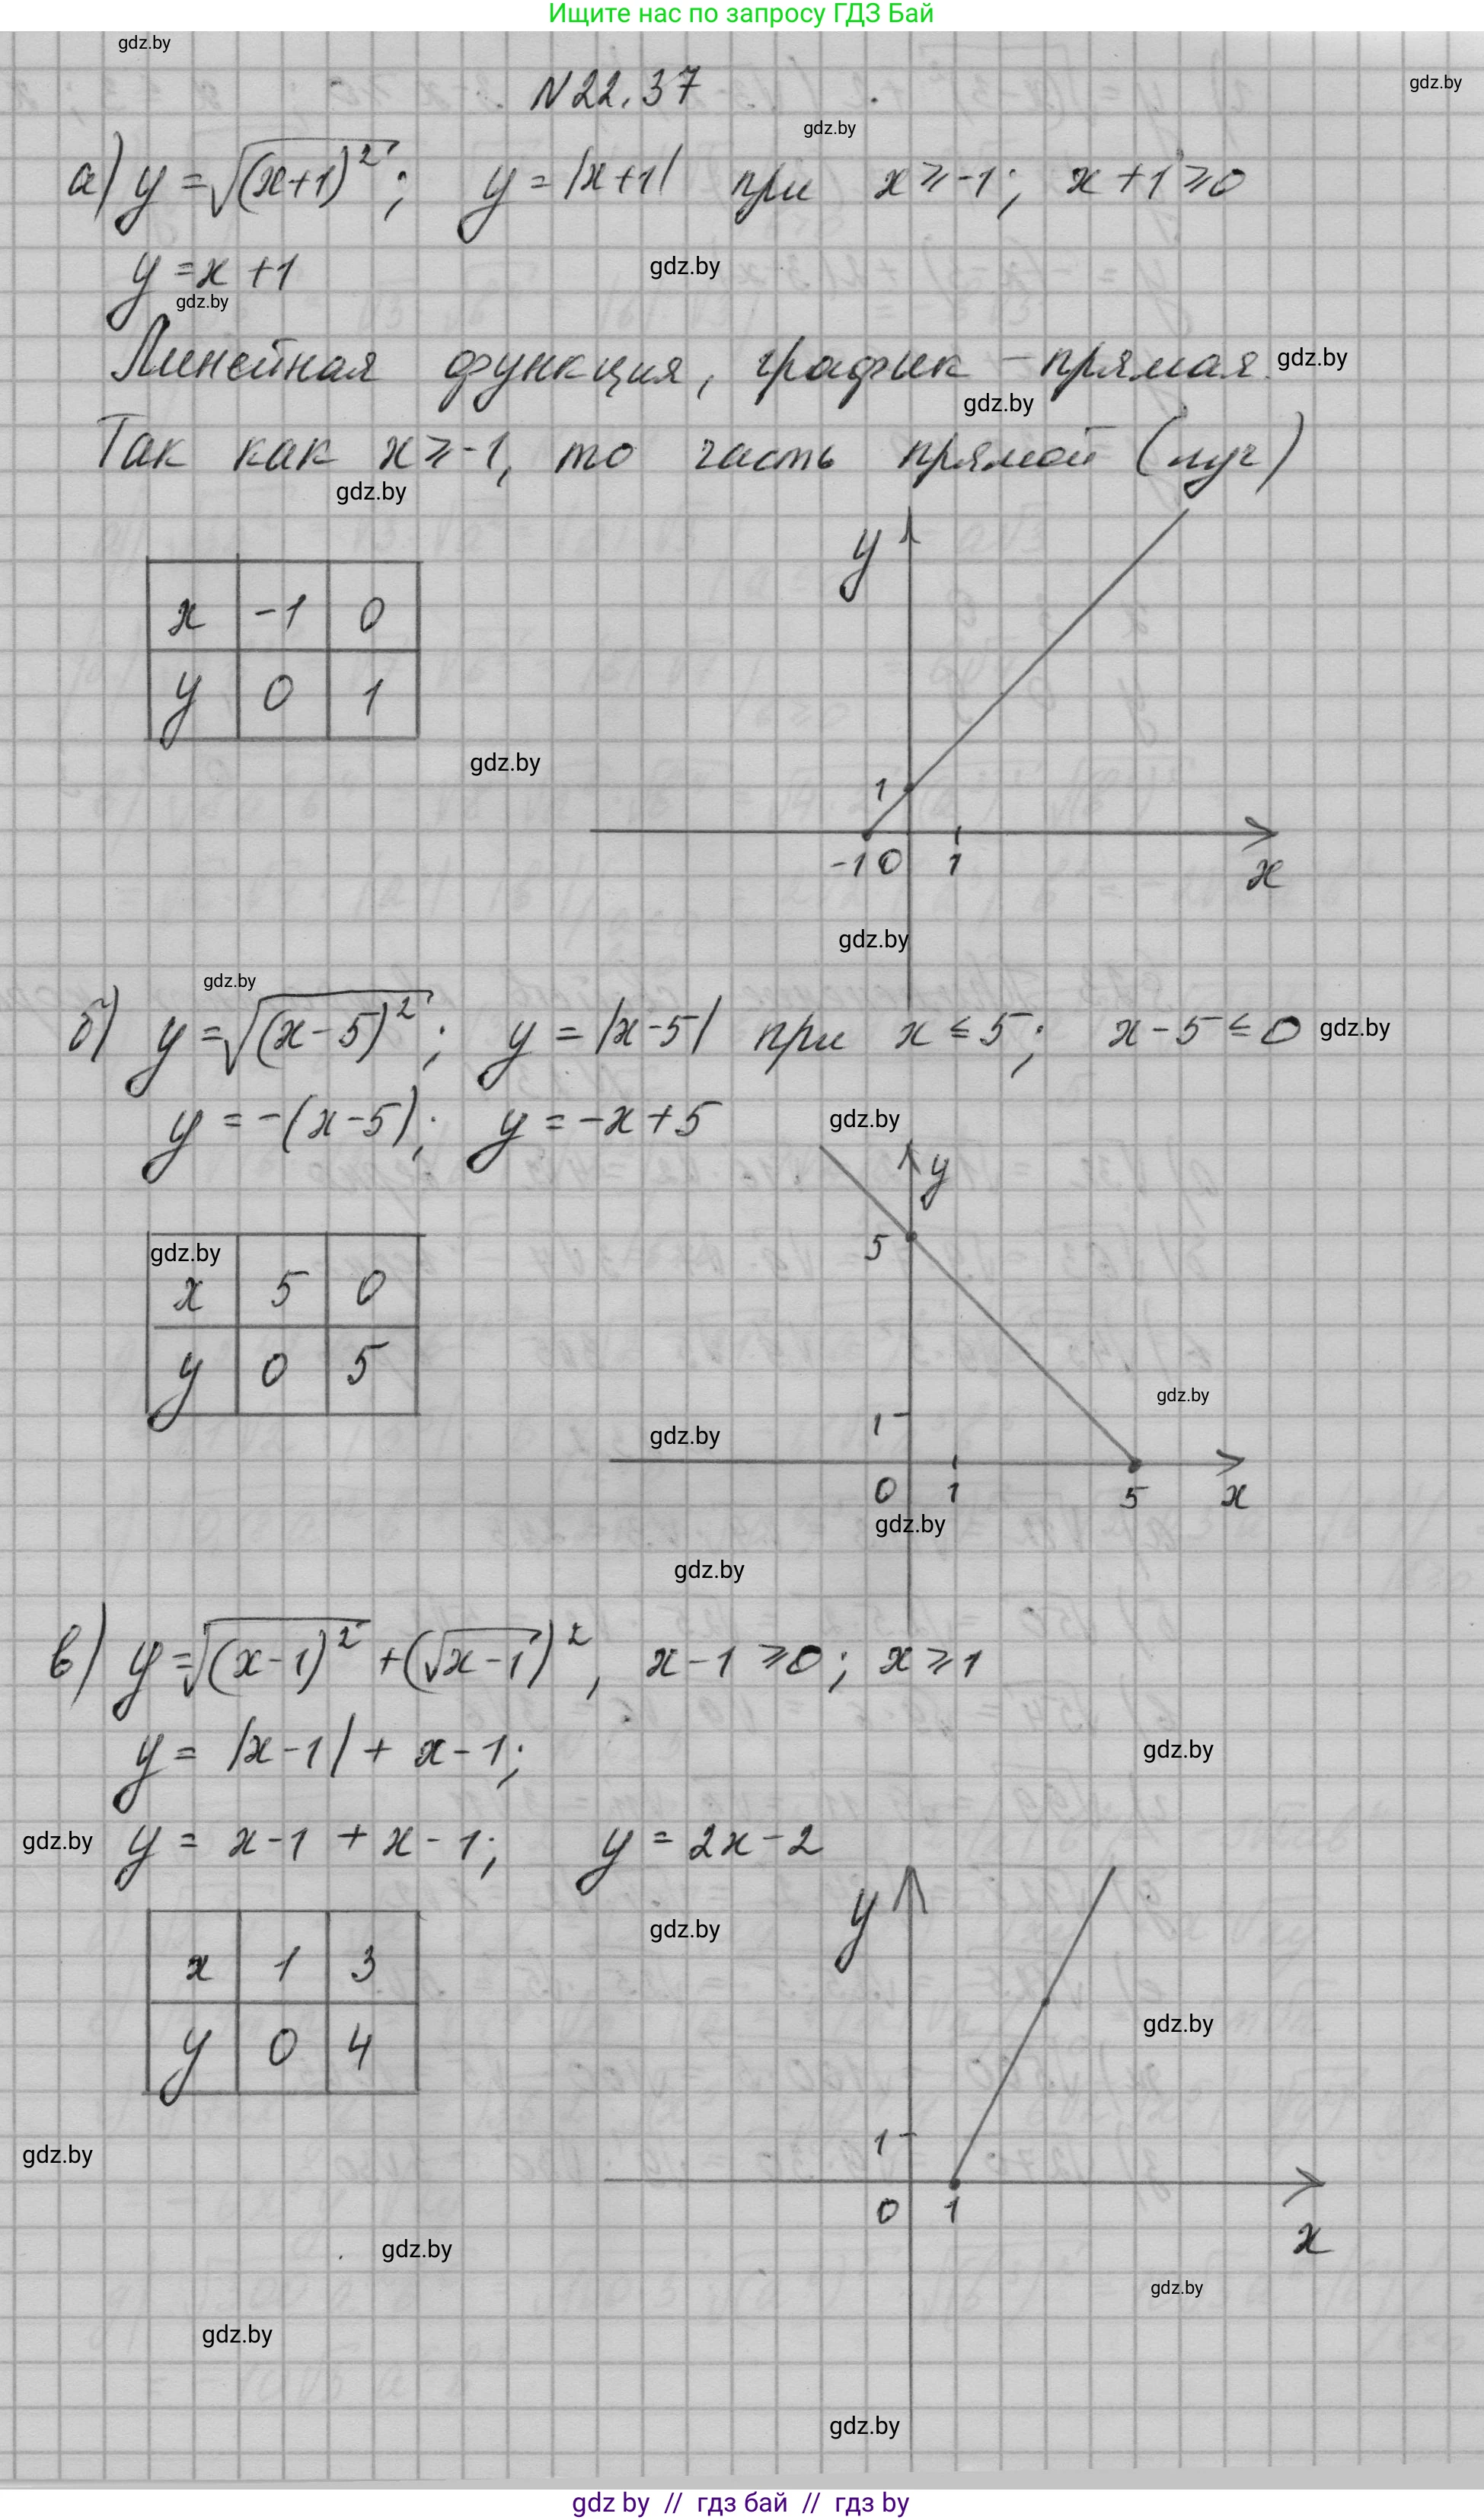 Ищите нас по запросу ГДЗ Бай
gdz.by
gdz.by
N22.37
gdz.by
а) y = √(x+1)²; y = |x+1| при x ⩾ -1; x+1 ⩾ 0
y = x+1
gdz.by
gdz.by
Линейная функция, график - прямая.
gdz.by
gdz.by
Так как x ⩾ -1, то часть прямой (луч)
gdz.by
y
x -1 0
y 0 1
gdz.by
1
-1 0 1
x
gdz.by
gdz.by
б) y = √(x-5)²; y = |x-5| при x ≤ 5; x-5 ≤ 0
gdz.by
y = -(x-5); y = -x+5
gdz.by
y
5
gdz.by
x 5 0
y 0 5
gdz.by
1
gdz.by
0 1 5 x
gdz.by
gdz.by
в) y = √(x-1)² + (√x-1)², x-1 ⩾ 0; x ⩾ 1
y = |x-1| + x-1;
gdz.by
gdz.by
y = x-1 + x-1; y = 2x-2
y
gdz.by
x 1 3
y 0 4
gdz.by
1
gdz.by
0 1
x
gdz.by
gdz.by
gdz.by
gdz.by
gdz by // гдз бай // гдз by